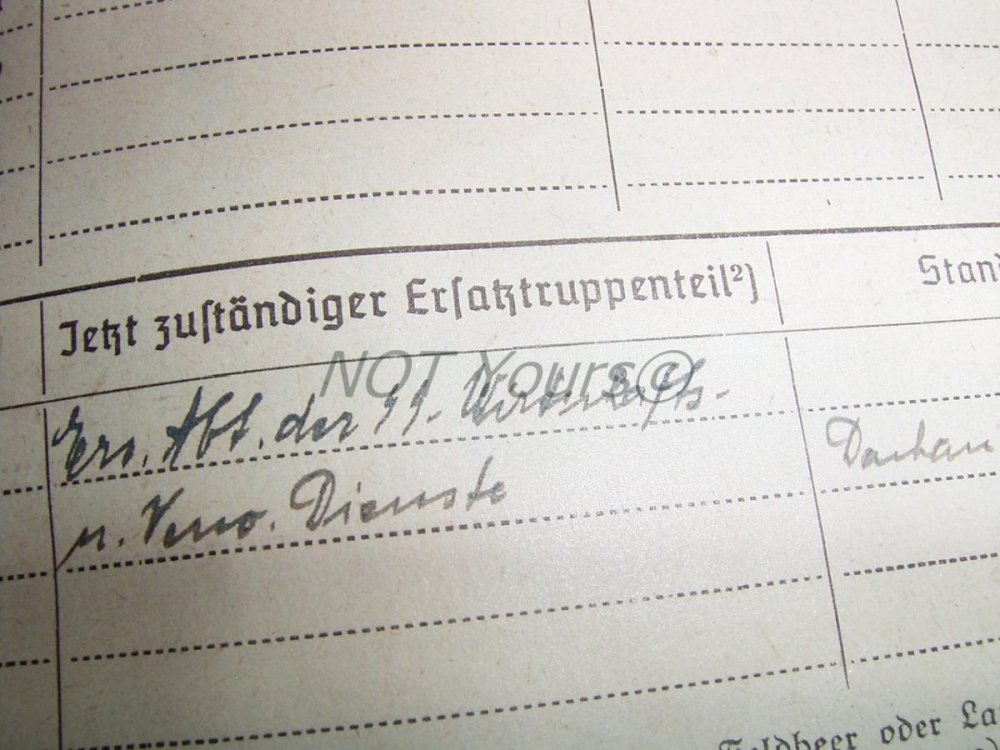 Jetzt zuständiger Ersatztruppenteil²) Stand
NOT Yours@
Ers. Abt. der SS-Wirtschafts-
u. Verw. Dienste Dachau
Feldheer oder La